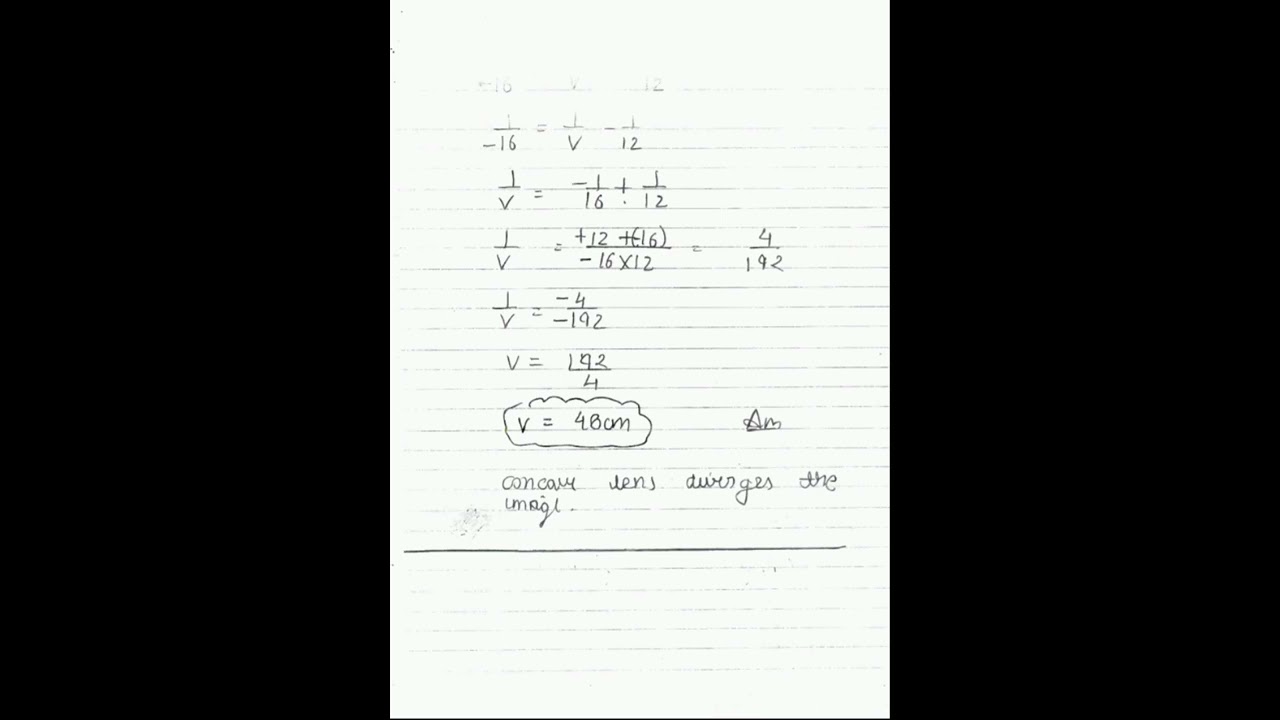 -16 V 12
1/-16 = 1/V - 1/12
1/V = -1/16 + 1/12
1/V = +12 +(-16)/-16×12 = 4/192
1/V = -4/-192
V = 192/4
V = 48cm Ans
concave lens diverges the
image.